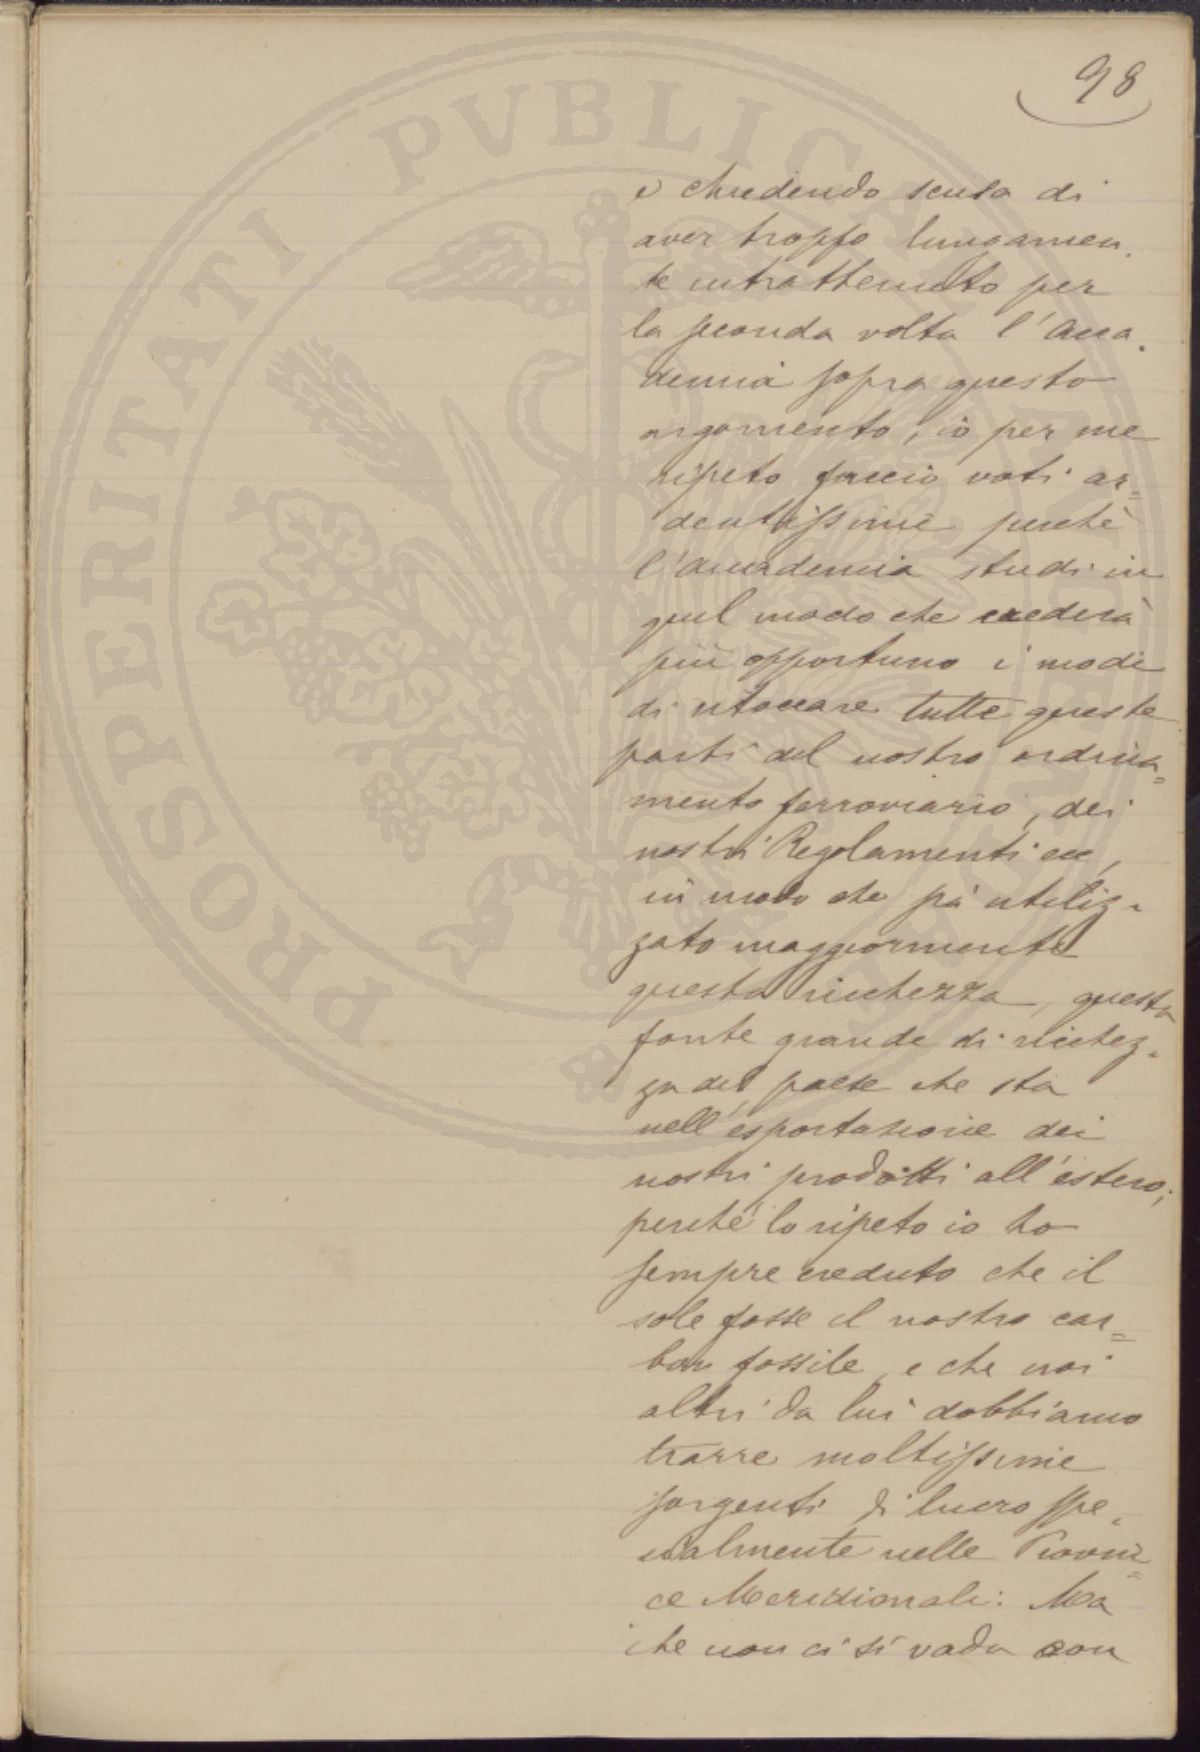 98
e chiedendo scusa di
aver troppo lungamen-
te intrattenuto per
la seconda volta l'Acca-
demia sopra questo
argomento, io per me
ripeto faccio voti ar=
dentissimi perchè
l'Accademia studi in
quel modo che crederà
più opportuno i modi
di ritoccare tutte queste
parti del nostro ordina=
mento ferroviario, dei
nostri Regolamenti ecc,
in modo che sia utiliz-
zato maggiormente
questa ricchezza, questa
fonte grande di ricchez-
za del paese che sta
nell'esportazione dei
nostri prodotti all'estero;
perchè lo ripeto io ho
sempre creduto che il
sole fosse il nostro car=
bon fossile, e che noi
altri da lui dobbiamo
trarre moltissime
sorgenti di lucro spe-
cialmente nelle Provin=
ce Meridionali: Ma
che non ci si vada con
PROSPERITATI PVBLICAE